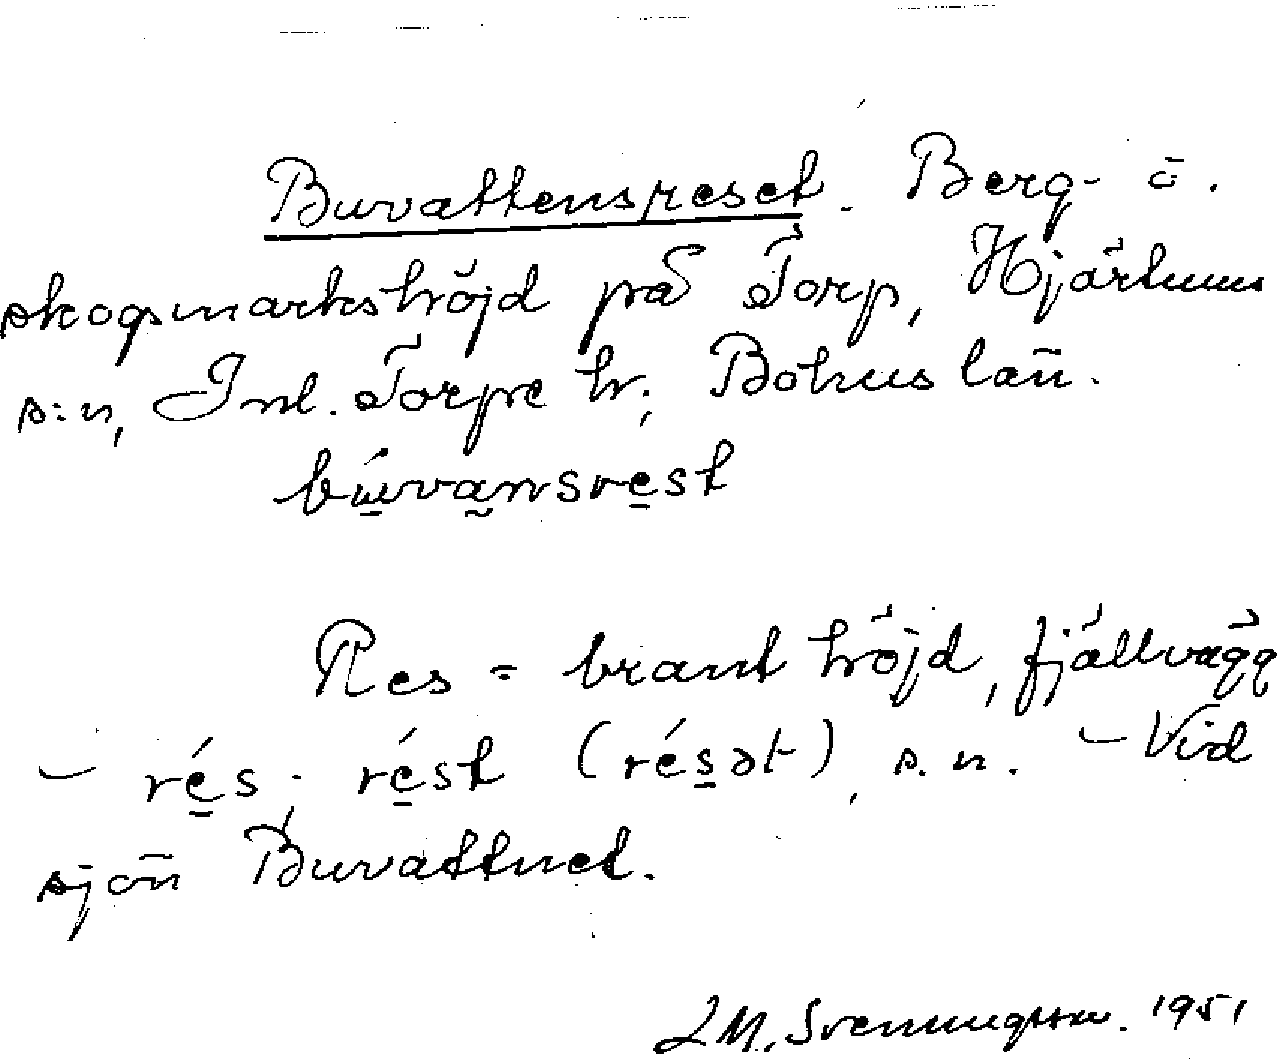 Buvattensreset. Berg- o.
skogsmarkshöjd på Torp, Hjärtums
s:n, Inl. Torpe hr; Bohuslän.
búvansrest
Res = brant höjd, fjällvägg
– rés; rést (résət), s. n. – Vid
sjön Buvattnet.
LM. Svenningsson. 1951